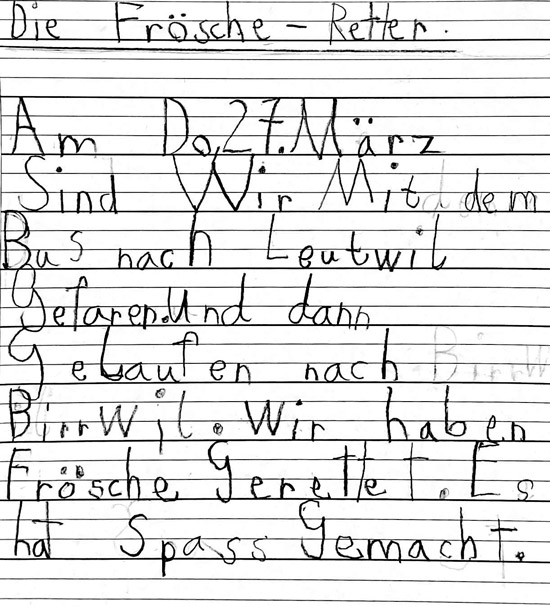 Die Frösche - Retter.
Am Do,27.März
Sind Wir Mit dem
Bus nach Leutwil
Gefaren.Und dann
Gelaufen nach
Birrwil. Wir haben
Frösche Gerettet. Es
hat Spass Gemacht.